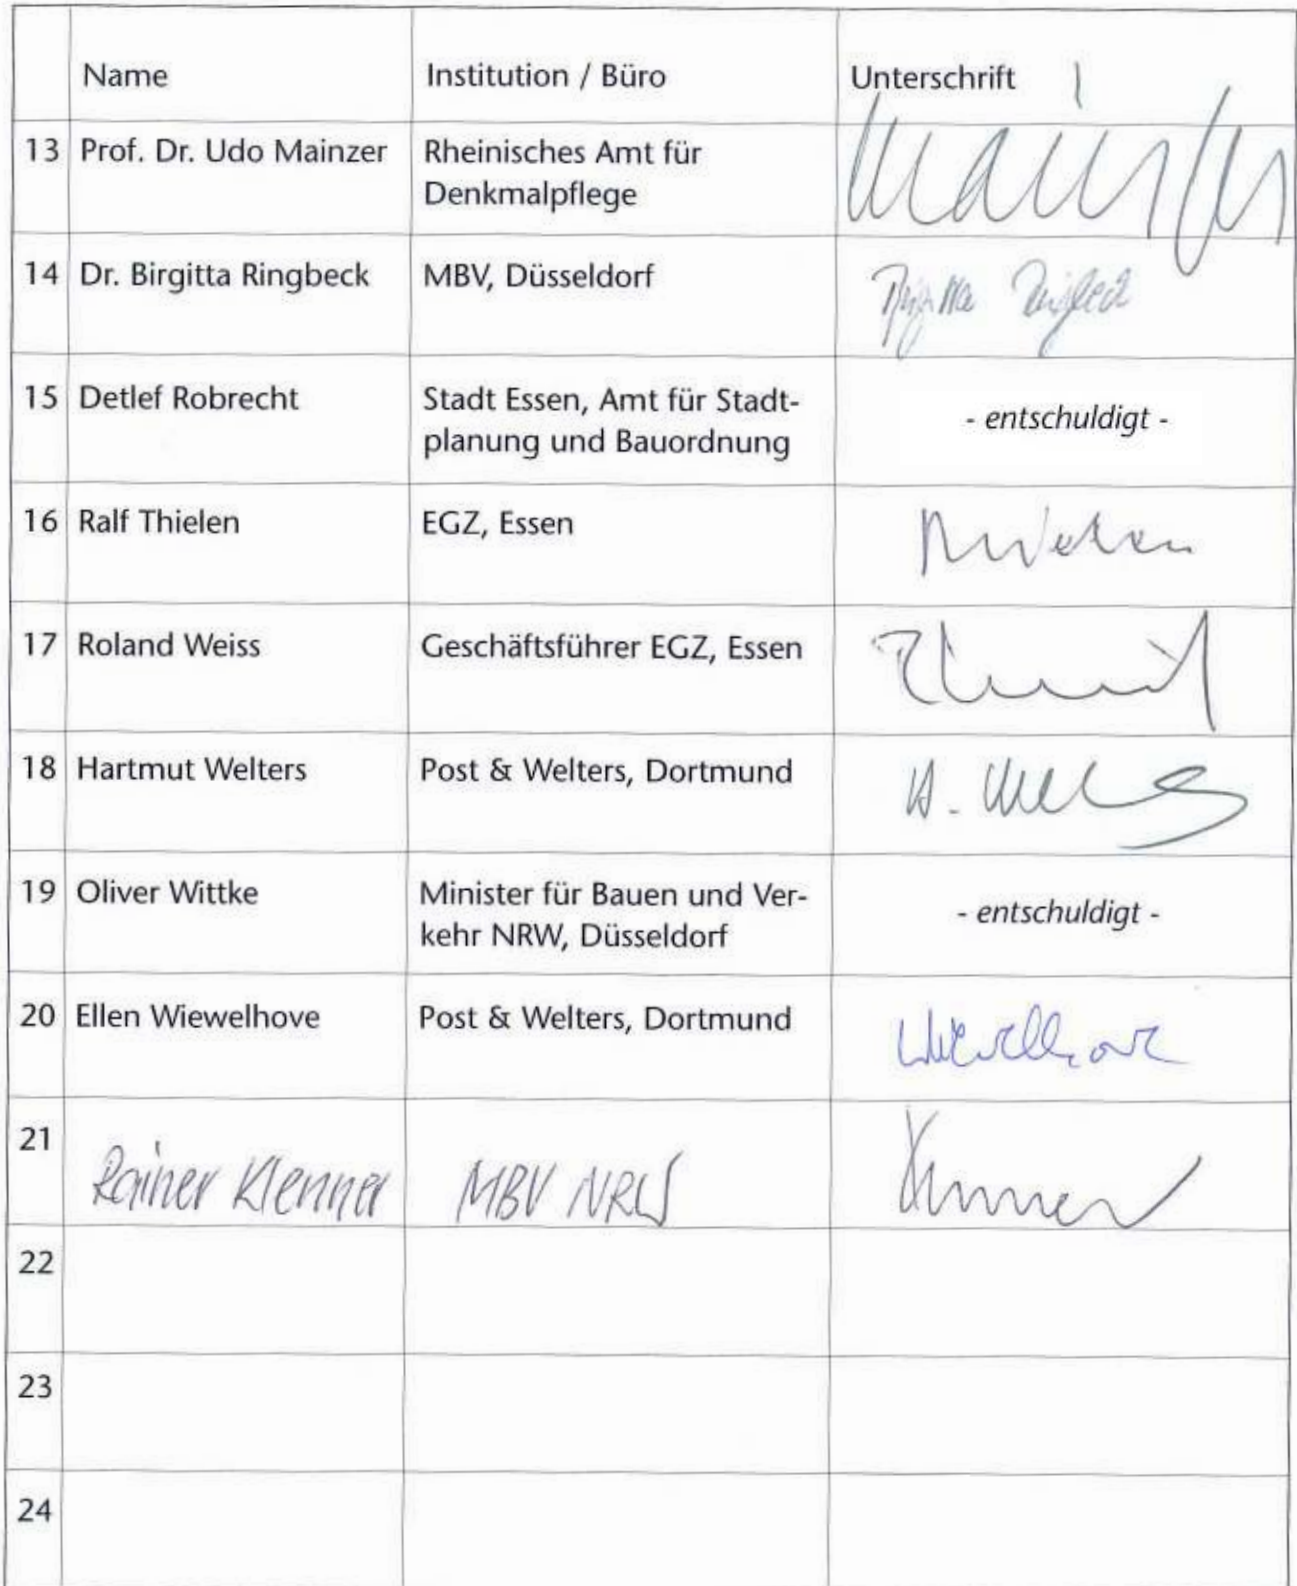 Name Institution / Büro Unterschrift
13 Prof. Dr. Udo Mainzer Rheinisches Amt für Mainzer
Denkmalpflege
14 Dr. Birgitta Ringbeck MBV, Düsseldorf Birgitta Ringbeck
15 Detlef Robrecht Stadt Essen, Amt für Stadt- - entschuldigt -
planung und Bauordnung
16 Ralf Thielen EGZ, Essen
17 Roland Weiss Geschäftsführer EGZ, Essen
18 Hartmut Welters Post & Welters, Dortmund
19 Oliver Wittke Minister für Bauen und Ver- - entschuldigt -
kehr NRW, Düsseldorf
20 Ellen Wiewelhove Post & Welters, Dortmund
21 Rainer Klenner MBV NRW
22
23
24